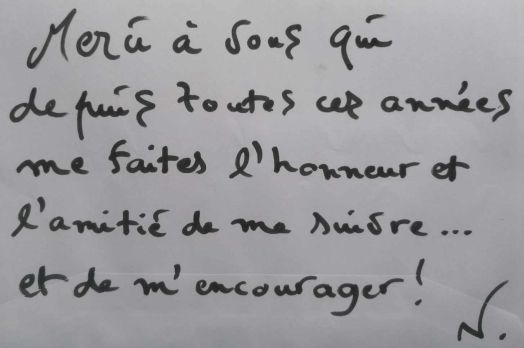 Merci à vous qui
depuis toutes ces années
me faites l'honneur et
l'amitié de me suivre...
et de m'encourager !
N.